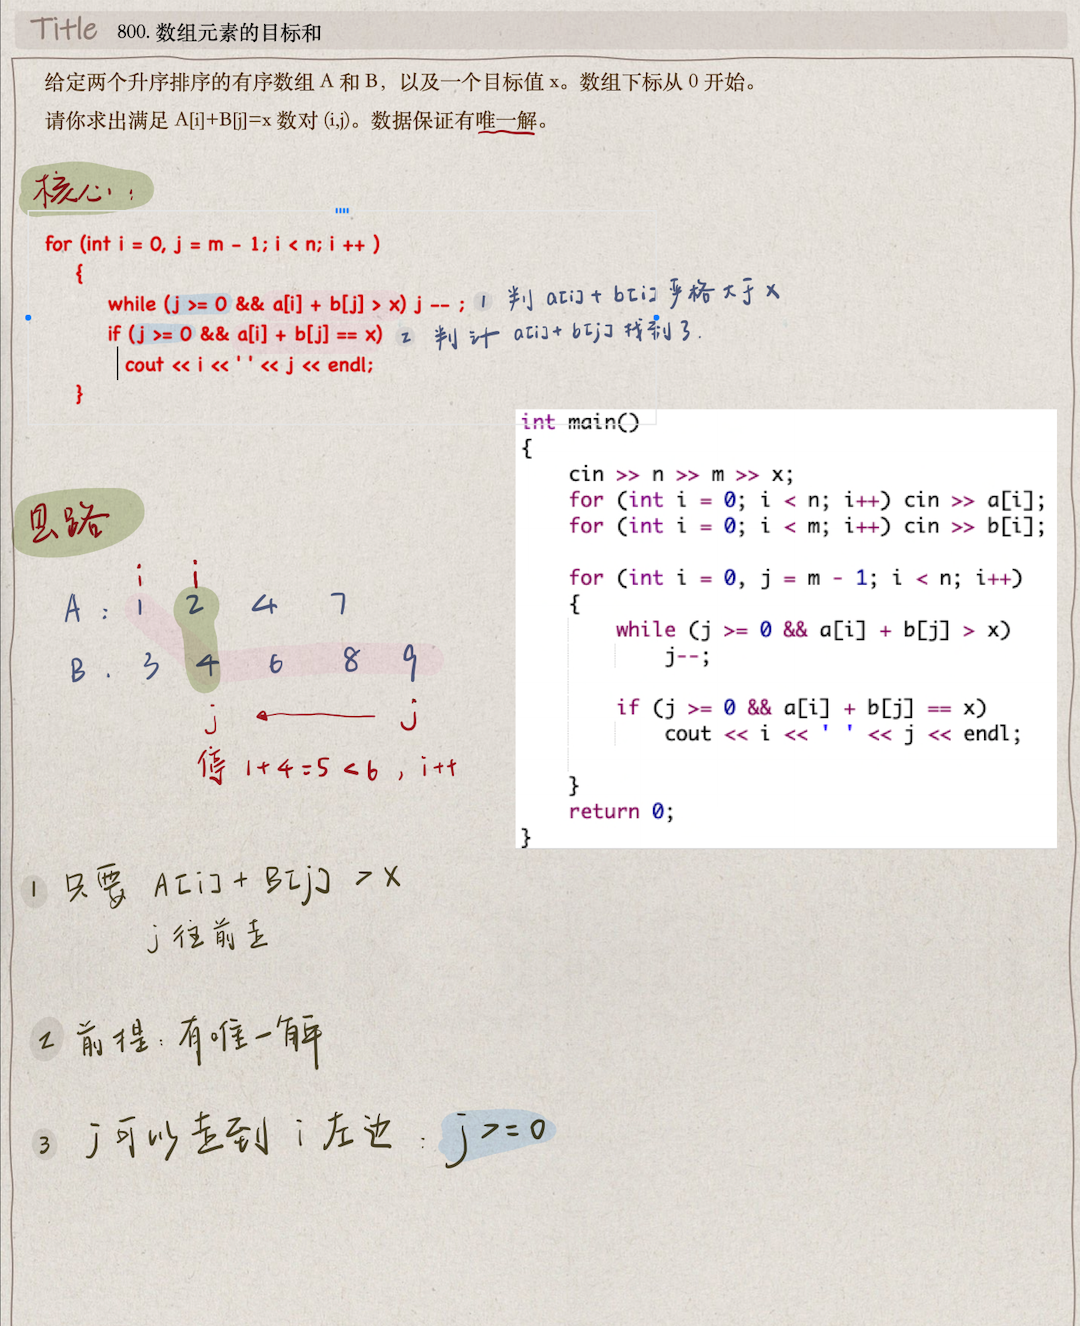 Title 800. 数组元素的目标和
给定两个升序排序的有序数组 A 和 B，以及一个目标值 x。数组下标从 0 开始。
请你求出满足 A[i]+B[j]=x 数对 (i,j)。数据保证有唯一解。
核心：
for (int i = 0, j = m - 1; i < n; i ++ )
{
while (j >= 0 && a[i] + b[j] > x) j -- ; 1 判 a[i] + b[i] 严格大于 x
if (j >= 0 && a[i] + b[j] == x) 2 判计 a[i]+b[j] 找到了.
cout << i << ' ' << j << endl;
}
int main()
{
cin >> n >> m >> x;
for (int i = 0; i < n; i++) cin >> a[i];
for (int i = 0; i < m; i++) cin >> b[i];
for (int i = 0, j = m - 1; i < n; i++)
{
while (j >= 0 && a[i] + b[j] > x)
j--;
if (j >= 0 && a[i] + b[j] == x)
cout << i << ' ' << j << endl;
}
return 0;
}
思路
i i
A : 1 2 4 7
B . 3 4 6 8 9
j j
停 1+4=5<6 , i++
1 只要 A[i]+B[j] >x
j 往前走
2 前提: 有唯一解
3 j可以走到 i 左边 : j>=0